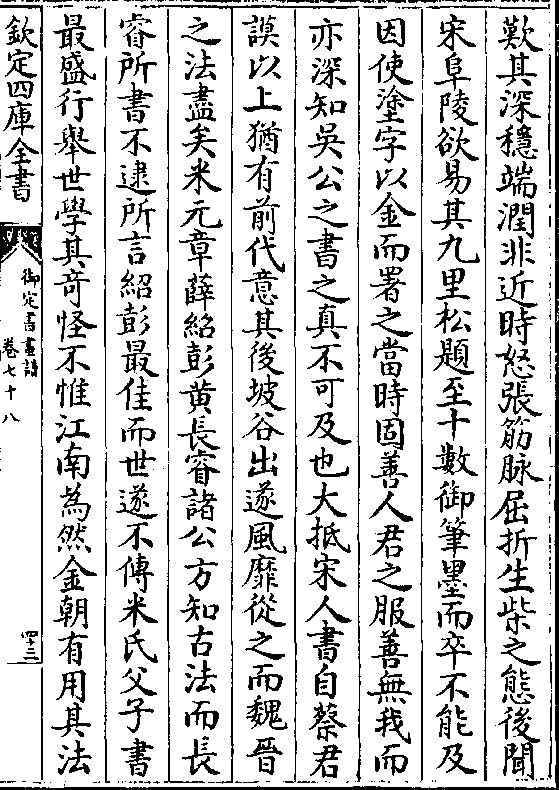 歎其深穩端潤非近時怒張筋脉屈折生柴之態後聞
宋阜陵欲易其九里松題至十數御筆墨而卒不能及
因使塗字以金而署之當時固善人君之服善無我而
亦深知吳公之書之真不可及也大抵宋人書自蔡君
謨以上猶有前代意其後坡谷出遂風靡從之而魏晉
之法盡矣米元章薛紹彭黃長睿諸公方知古法而長
睿所書不逮所言紹彭最佳而世遂不傳米氏父子書
最盛行舉世學其奇怪不惟江南為然金朝有用其法
欽定四庫全書
御定書畫譜
卷七十八
四十三